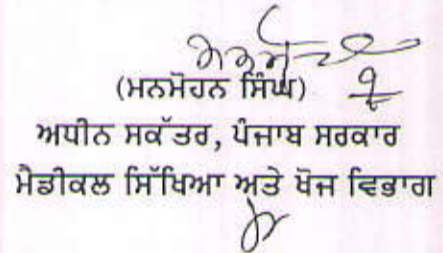 (ਮਨਮੋਹਨ ਸਿੰਘ)
ਅਧੀਨ ਸਕੱਤਰ, ਪੰਜਾਬ ਸਰਕਾਰ
ਮੈਡੀਕਲ ਸਿੱਖਿਆ ਅਤੇ ਖੋਜ ਵਿਭਾਗ